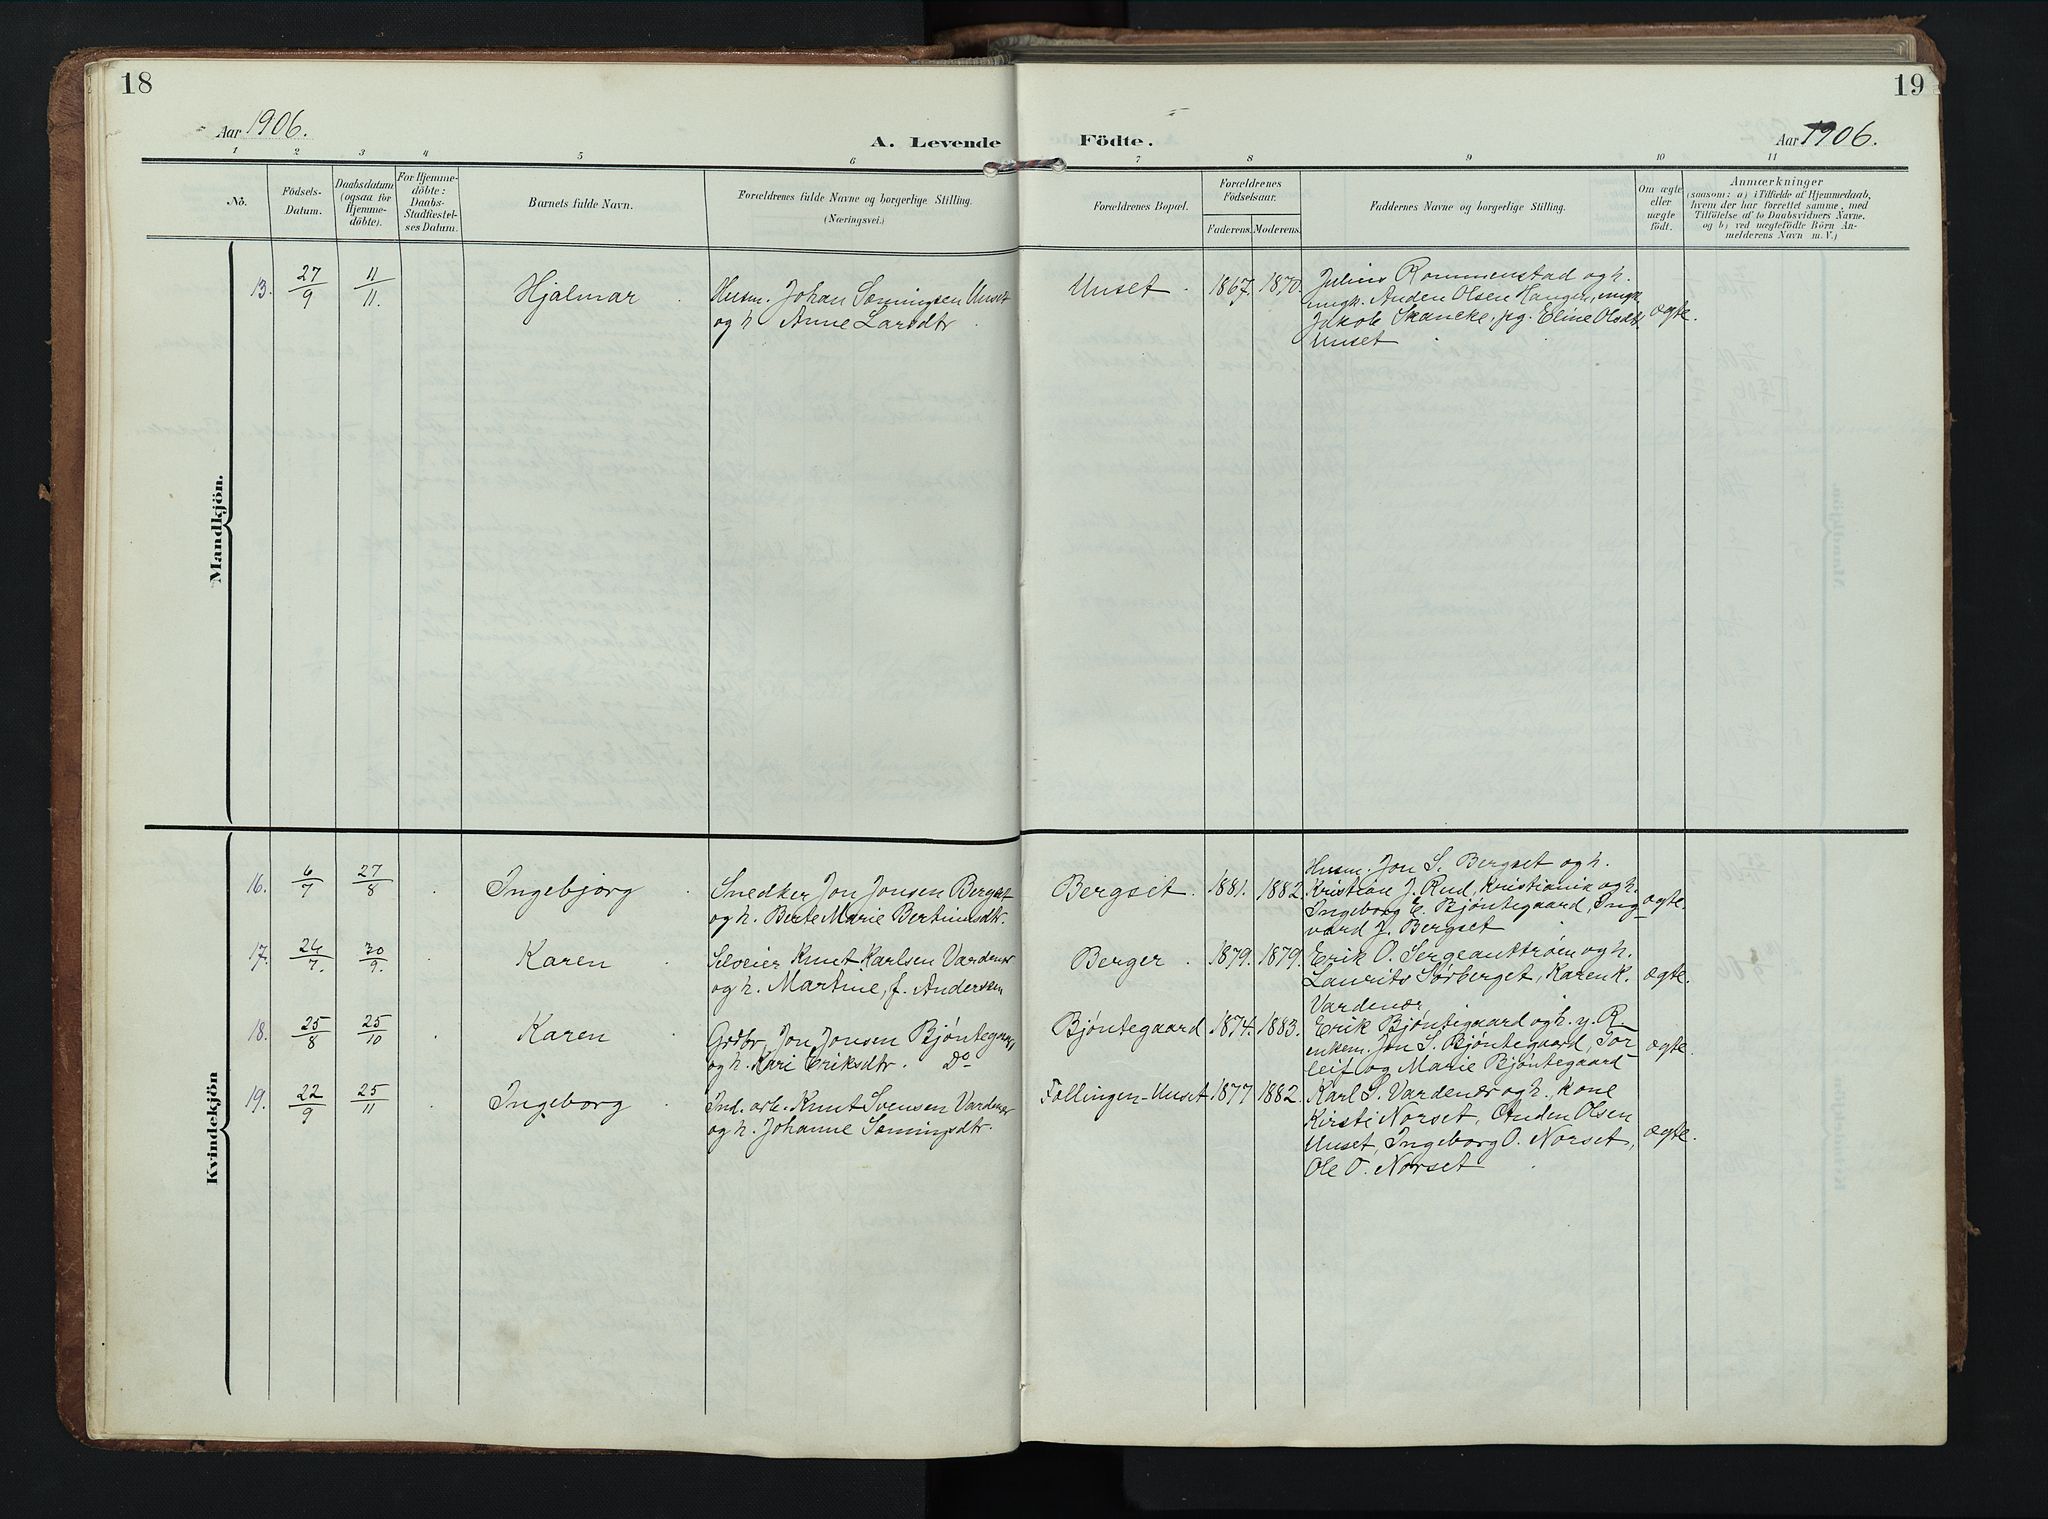 18
19
Aar 1906.
A. Levende Födte.
Aar 1906.
1 2 3 4 5 6 7 8 9 10 11
Nô.
Födsels-
Datum.
Daabsdatum
(ogsaa for
Hjemme-
döbte).
For Hjemme-
döbte:
Daabs-
Stadfæstel-
ses Datum.
Barnets fulde Navn.
Forældrenes fulde Navne og borgerlige Stilling.
(Næringsvei.)
Forældrenes Bopæl.
Forældrenes
Födselsaar.
Faderens. Moderens.
Faddernes Navne og borgerlige Stilling.
Om ægte
eller
uægte
født.
Anmærkninger
(saasom: a) i Tilfælde af Hjemmedaab,
hvem der har forrettet samme, med
Tilföielse af to Daabsvidners Navne,
og b) ved uægtefödte Börn An-
melderens Navn m. V.)
Mandkjön.
13. 27/9 11/11. Hjalmar
Husm. Johan Sæmingsen Unset
og h Anne Larsdtr
Unset 1867. 1870.
Julius Rommenstad og h.
ungk. Anden Olsen Hangen, ungk
Jakob Skancke, pg. Eline Olsdtr
Unset
ægte.
Kvindekjön
16. 6/7 27/8 Ingebjørg
Snedker Jon Jonsen Bergset
og h. Berte Marie Bertinusdtr.
Bergset. 1881. 1882
Husm. Jon S. Bergset og h.
Kristian J. Rud, Kristiania og h.
Ingeborg E. Bjøntegaard, Ing
vard J. Bergset
ægte.
17. 24/7. 30/9. Karen
Selveier Knut Karlsen Vardenær
og h. Martine, f. Andersen
Berger 1879. 1879.
Erik O. Sergeantstrøen og h.
Laurits Sørberget, Karen K.
Vardenær
ægte.
18. 25/8 25/10 Karen
Grdbr, Jon Jonsen Bjøntegaard,
og h. Kari Eriksdtr. Do
Bjøntegaard 1874. 1883.
Erik Bjøntegaard og h. y. R
enkem. Jon S. Bjøntegaard, Tor
leif og Marie Bjøntegaard
ægte.
19. 22/9 25/11 Ingeborg
Ind. arb. Knut Svensen Vardenær
og h. Johanne Sæmingsdtr.
Follingen-Unset 1877 1882.
Karl S. Vardenær og h., kone
Kirsti Norset, Anden Olsen
Unset, Ingeborg O. Norset,
Ole O. Norset
ægte.